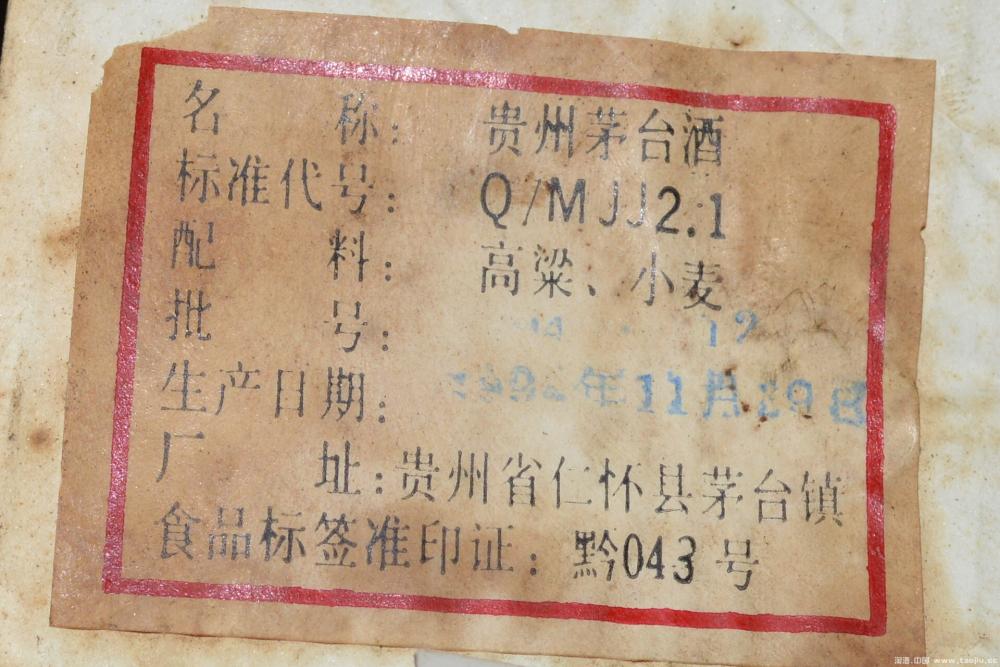 名 称： 贵州茅台酒
标准代号： Q/MJJ2.1
配 料： 高粱、小麦
批 号：
生产日期： 年11月 日
厂 址：贵州省仁怀县茅台镇
食品标签准印证： 黔043号
淘酒.中国 www.taojiu.cc